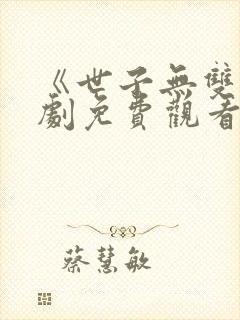 《世子無雙
劇免費觀看
蔡慧敏